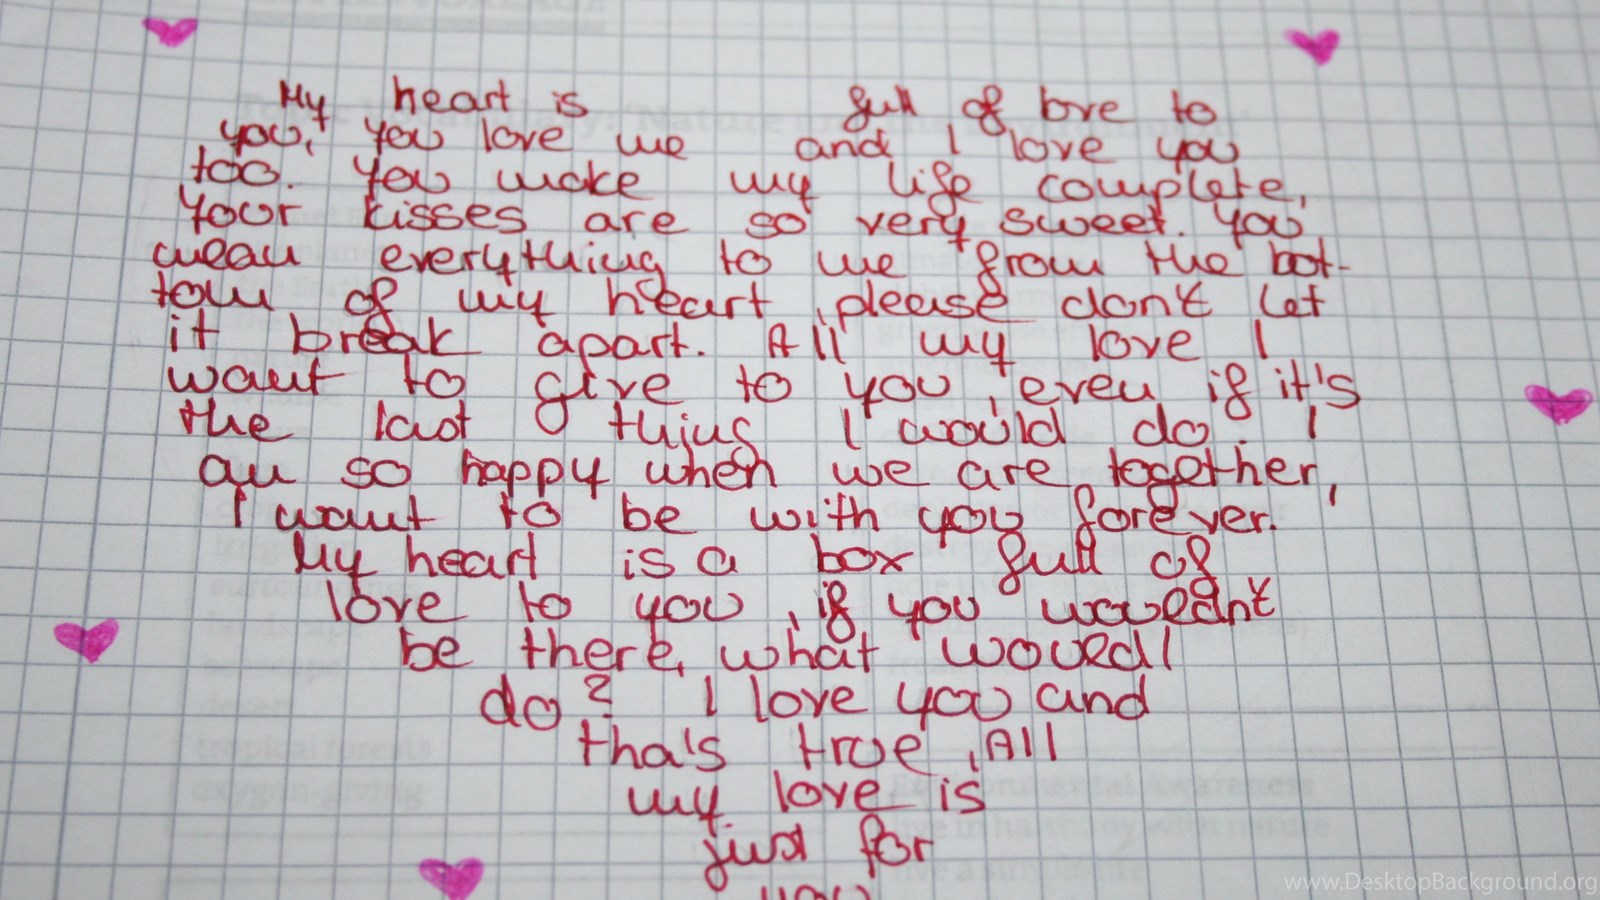 My heart is full of love to
you, you love me and I love you
too. You make my life complete,
Your kisses are so very sweet. You
mean everything to me from the bot-
tom of my heart, please don't let
it break apart. All my love I
want to give to you, even if it's
the last thing I would do. I
am so happy when we are together,
I want to be with you forever.
My heart is a box full of
love to you, if you wouldn't
be there, what would I
do? I love you and
tha's true, All
my love is
just for
you
www.DesktopBackground.org